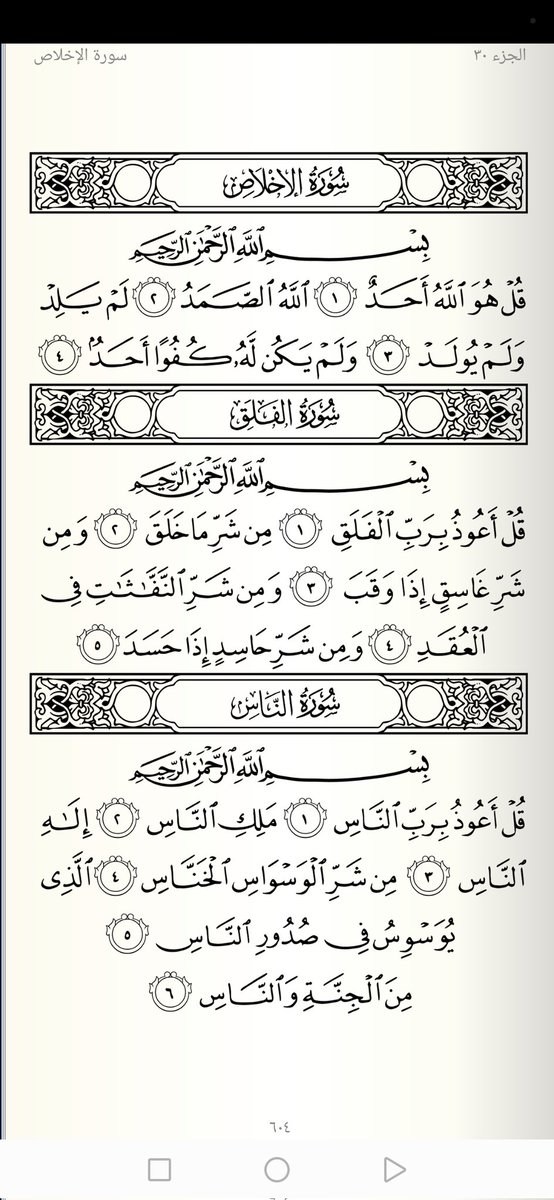 الجزء ٣٠
سورة الإخلاص
سُورَةُ الإِخْلَاصِ
بِسْمِ ٱللَّهِ ٱلرَّحْمَٰنِ ٱلرَّحِيمِ
قُلْ هُوَ ٱللَّهُ أَحَدٌ ١ ٱللَّهُ ٱلصَّمَدُ ٢ لَمْ يَلِدْ
وَلَمْ يُولَدْ ٣ وَلَمْ يَكُن لَّهُۥ كُفُوًا أَحَدٌۢ ٤
سُورَةُ الفَلَقِ
بِسْمِ ٱللَّهِ ٱلرَّحْمَٰنِ ٱلرَّحِيمِ
قُلْ أَعُوذُ بِرَبِّ ٱلْفَلَقِ ١ مِن شَرِّ مَا خَلَقَ ٢ وَمِن
شَرِّ غَاسِقٍ إِذَا وَقَبَ ٣ وَمِن شَرِّ ٱلنَّفَّٰثَٰتِ فِى
ٱلْعُقَدِ ٤ وَمِن شَرِّ حَاسِدٍ إِذَا حَسَدَ ٥
سُورَةُ النَّاسِ
بِسْمِ ٱللَّهِ ٱلرَّحْمَٰنِ ٱلرَّحِيمِ
قُلْ أَعُوذُ بِرَبِّ ٱلنَّاسِ ١ مَلِكِ ٱلنَّاسِ ٢ إِلَٰهِ
ٱلنَّاسِ ٣ مِن شَرِّ ٱلْوَسْوَاسِ ٱلْخَنَّاسِ ٤ ٱلَّذِى
يُوَسْوِسُ فِى صُدُورِ ٱلنَّاسِ ٥
مِنَ ٱلْجِنَّةِ وَٱلنَّاسِ ٦
٦٠٤